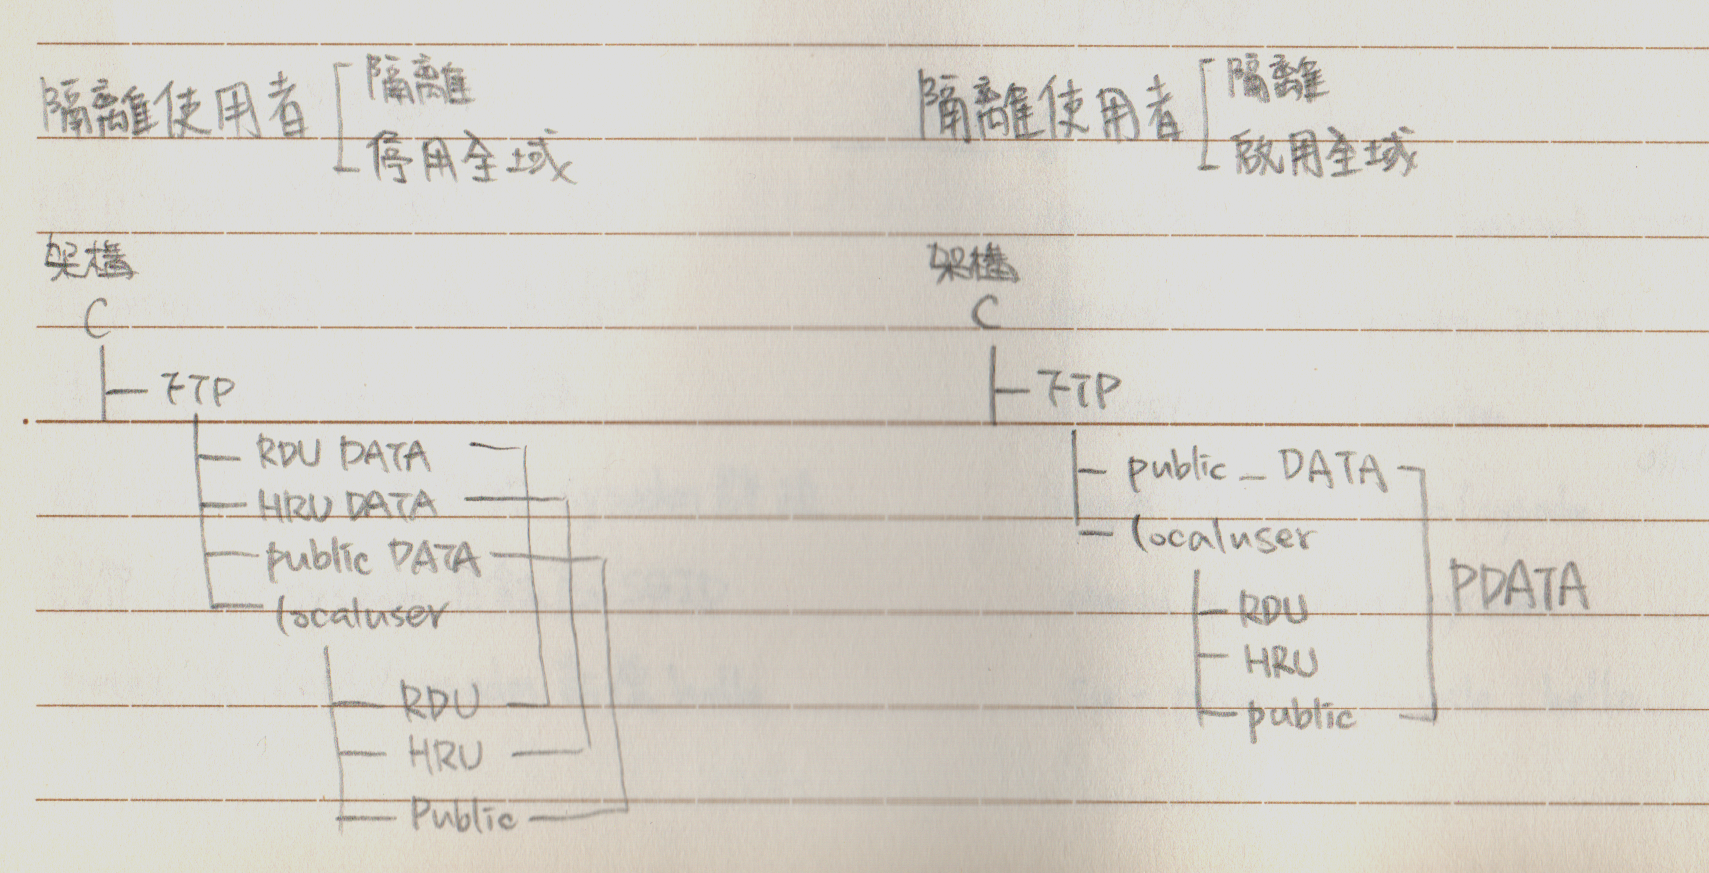 隔離使用者
隔離
停用全域
架構
C
FTP
RDU DATA
HRU DATA
public DATA
localuser
RDU
HRU
Public
隔離使用者
隔離
啟用全域
架構
C
FTP
public_DATA
localuser
PDATA
RDU
HRU
public